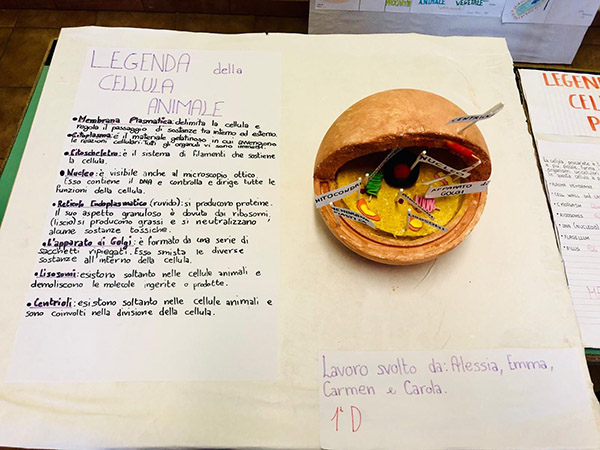 LEGENDA della
CELLULA
ANIMALE
• Membrana Plasmatica: delimita la cellula e
regola il passaggio di sostanze tra interno ed esterno.
• Citoplasma: è il materiale gelatinoso in cui avvengono
le reazioni cellulari. Tutti gli organuli vi sono immersi.
• Citoscheletro: è il sistema di filamenti che sostiene
la cellula.
• Nucleo: è visibile anche al microscopio ottico.
Esso contiene il DNA e controlla e dirige tutte le
funzioni della cellula.
• Reticolo Endoplasmatico (ruvido): si producono proteine.
Il suo aspetto granuloso è dovuto dai ribosomi,
(liscio) si producono grassi e si neutralizzano
alcune sostanze tossiche.
• L'apparato di Golgi: è formato da una serie di
sacchetti ripiegati. Esso smista le diverse
sostanze all'interno della cellula.
• Lisosomi: esistono soltanto nelle cellule animali e
demoliscono le molecole ingerite o prodotte.
• Centrioli: esistono soltanto nelle cellule animali e
sono coinvolti nella divisione della cellula.
CENTRIOLI
NUCLEO
MITOCONDRI
APPARATO
GOLGI
Lavoro svolto da: Alessia, Emma,
Carmen e Carola.
1ª D
ANIMALE
VEGETALE
LEGEN
CEL
P